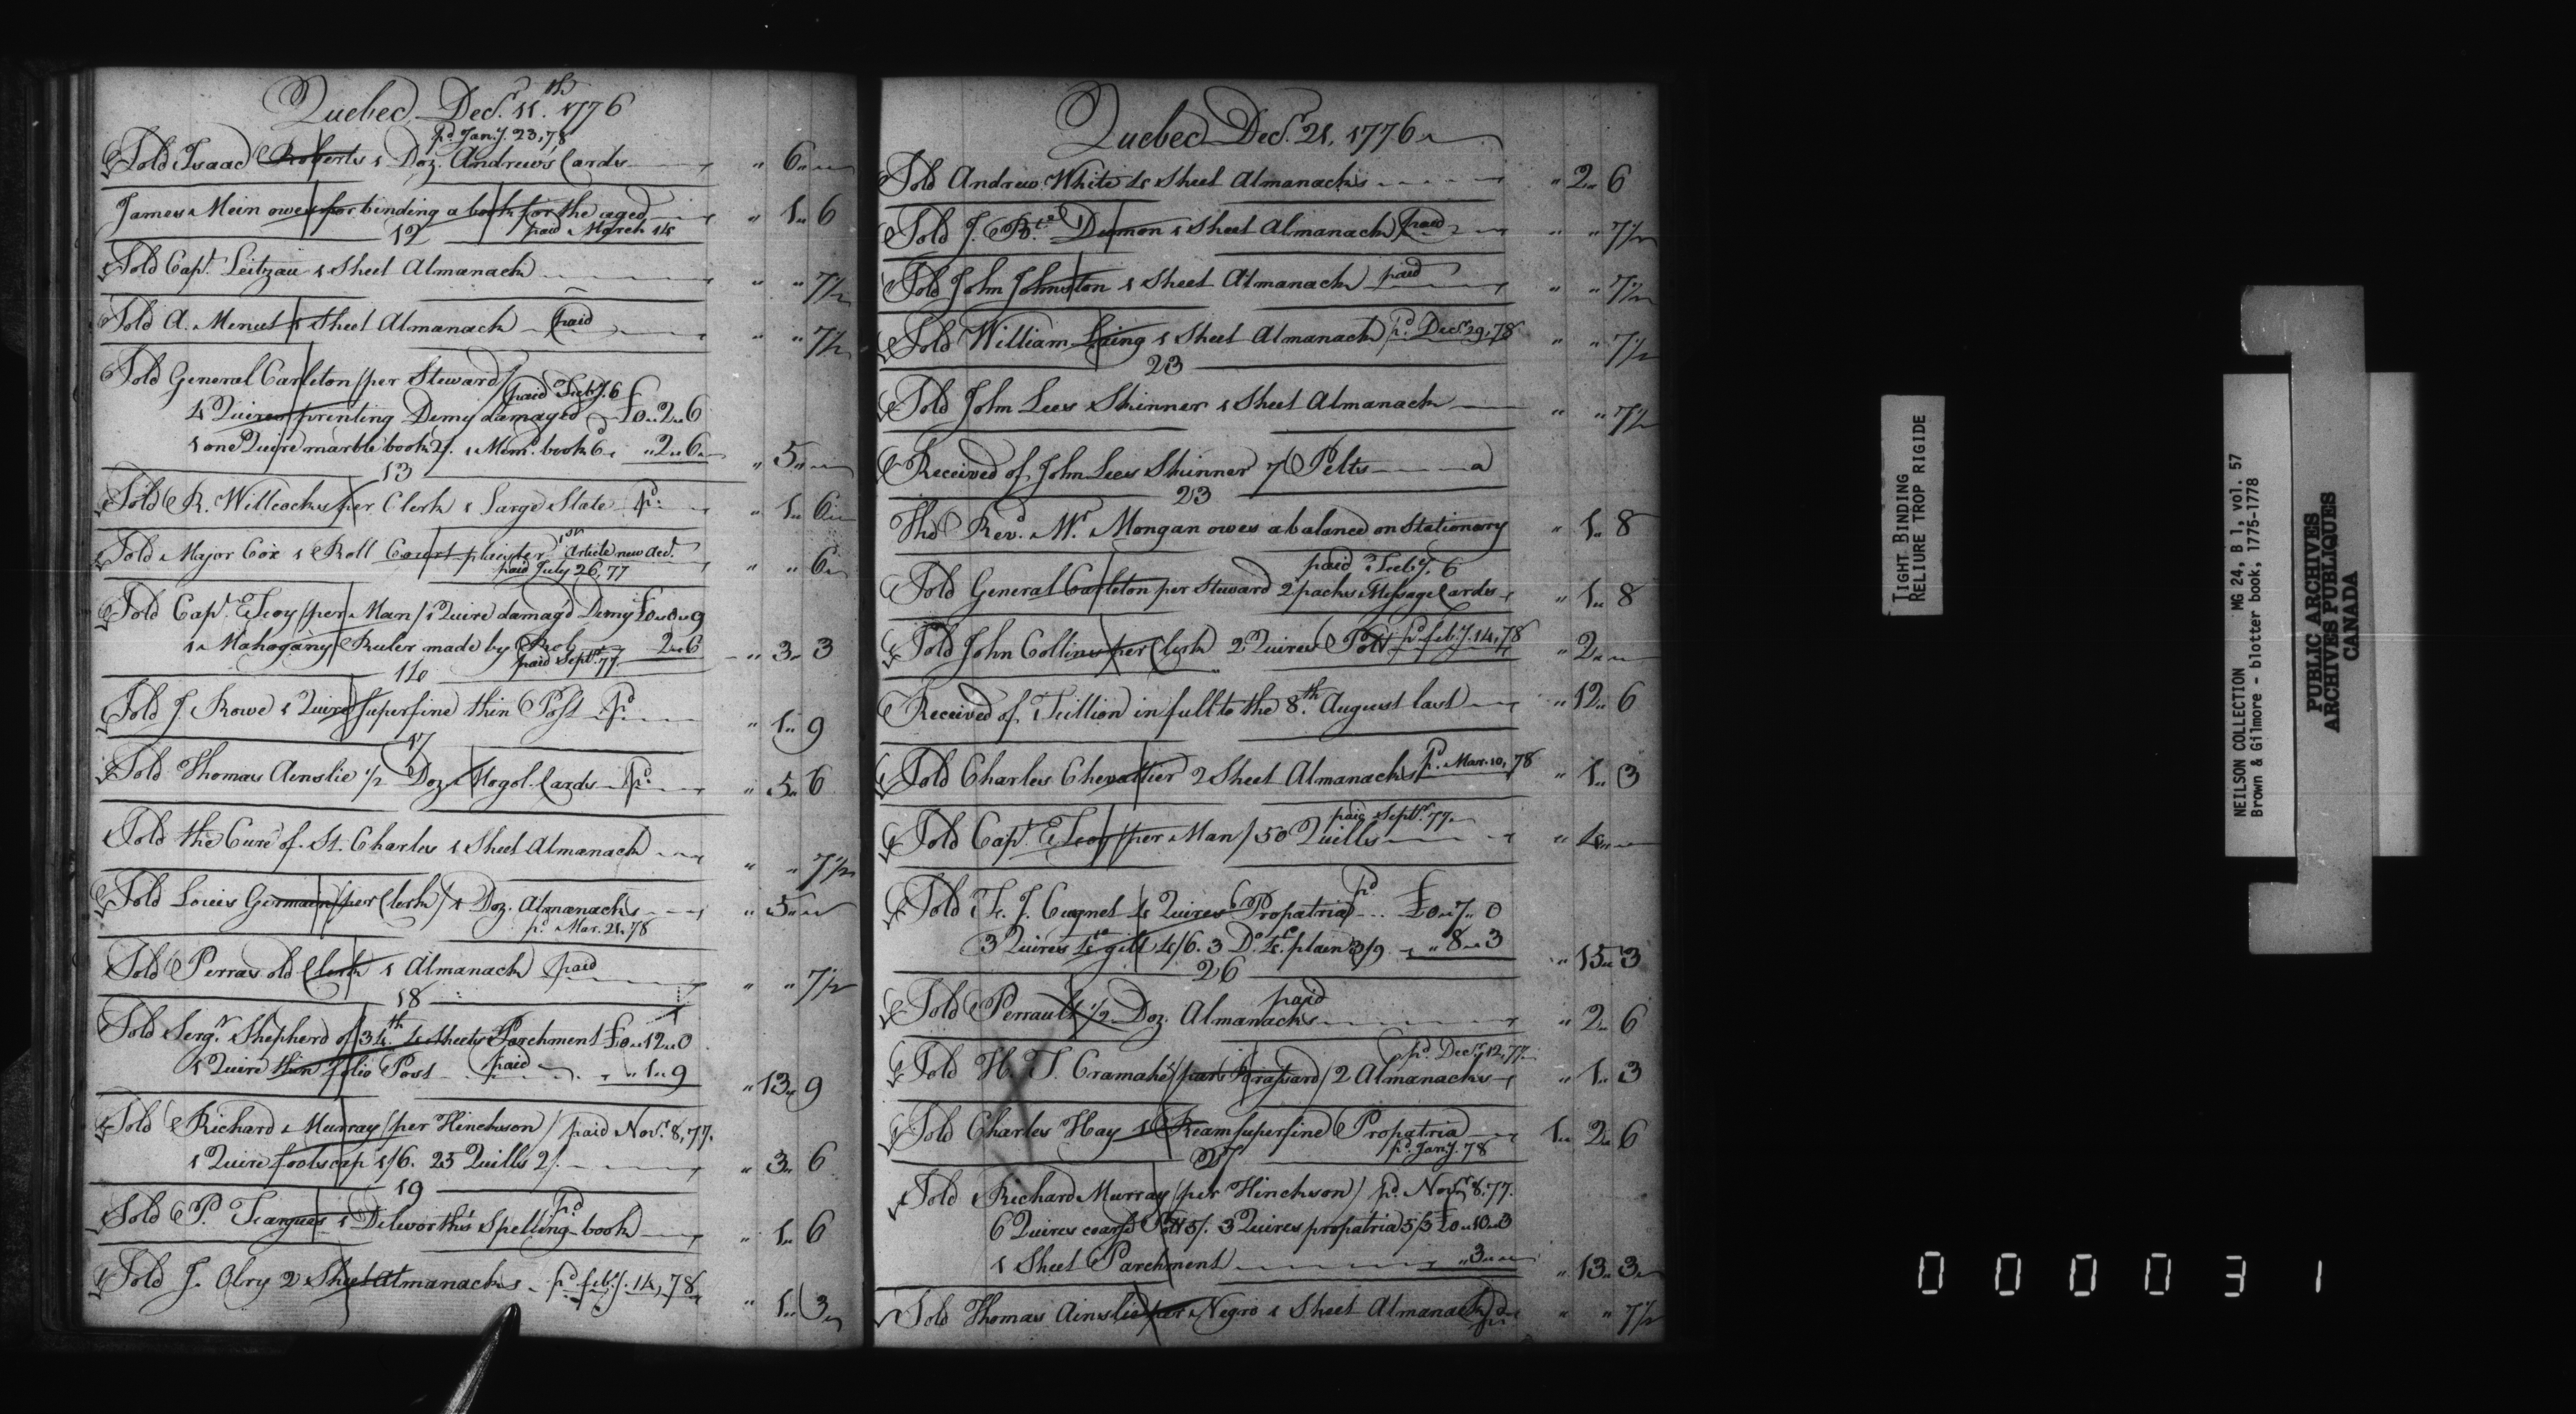 Quebec, Decr. 11th. 1776
pd. Jany. 23, 78
Sold Isaac Roberts 1 Doz. Andrew's Cards " 6 "
James Mein owes for binding a book for the aged " 1 " 6
12 paid March 14
Sold Capt. Leitzau 1 Sheet Almanack " " 7 1/2
Sold A. Menut 1 Sheet Almanack paid " " 7 1/2
Sold General Carleton / per Steward /
paid Feby. 6
4 Quires printing Demy damaged £0 " 2 " 6
1 one Quire marble book 2/. 1 Mem. book 6d " 2 " 6 " 5 "
13
Sold R. Willcocks per Clerk 1 Large Slate pd. " 1 " 6
Sold Major Cox 1 Roll Court plaister 1st Article new acct. " " 6
paid July 26, 77
Sold Capt. Foy / per Man / 1 Quire damag'd Demy £0 " 0 " 9
1 Mahogany Ruler made by Rob 2 " 6 " 3 " 3
paid Septr. 77
14
Sold J. Rowe 1 Quire superfine thin Post pd. " 1 " 9
17
Sold Thomas Ainslie 1/2 Doz. Mogol Cards pd. " 5 " 6
Sold the Cure of St. Charles 1 Sheet Almanack " " 7 1/2
Sold Louis Germain / per Clerk / 1 Doz. Almanacks " 5 "
pd. Mar. 21. 78
Sold Perras old Clerk 1 Almanack paid " " 7 1/2
18
Sold Sergt. Shepherd of 34th. 4 sheets Parchment £0 " 12 " 0
1 Quire thin folio Post paid " 1 " 9 " 13 " 9
Sold Richard Murray / per Hinckson / paid Novr. 8, 77.
1 Quire foolscap 1/6. 25 Quills 2/. " 3 " 6
19
Sold P. Feargues 1 Dilworth's Spelling-book pd " 1 " 6
Sold J. Olry 2 Sheet Almanacks pd. feby. 14, 78 " 1 " 3
Quebec Decr. 21, 1776
Sold Andrew White 4 Sheet Almanacks " 2 " 6
Sold J. Bte. Dumon 1 Sheet Almanack paid " " 7 1/2
Sold John Johnston 1 Sheet Almanack paid " " 7 1/2
Sold William Laing 1 Sheet Almanack pd. Decr. 29, 78 " " 7 1/2
23
Sold John Lees Skinner 1 Sheet Almanack " " 7 1/2
Received of John Lees Skinner 7 Pelts
23
The Revd. Mr. Mongan owes a balance on Stationary " 1 " 8
paid Feby. 6
Sold General Carleton per Steward 2 packs Message Cards " 1 " 8
Sold John Collins per Clerk 2 Quires Pott pd. feby. 14, 78 " 2 "
Received of Fillion in full to the 8th. August last " 12 " 6
Sold Charles Chevallier 2 Sheet Almanacks pd. Mar. 10, 78 " 1 " 3
paid Septr. 77
Sold Capt. Foy / per Man / 50 Quills " 4 "
Sold F. J. Cugnet 4 Quires Propatria pd £0 " 7 " 0
3 Quires 4to gilt 4/6. 3 Do. 4to. plain 3/9 " 8 " 3 " 15 " 3
26
Sold Perrault 1/2 Doz. Almanacks paid " 2 " 6
pd. Decr. 12, 77
Sold H. T. Cramahé / par Brassard / 2 Almanacks " 1 " 3
Sold Charles Hay 1 Ream superfine Propatria 1 " 2 " 6
pd. Jany. 78
27
Sold Richard Murray / per Hinckson / pd. Novr. 8, 77.
6 Quires coarse Pott 5/. 3 Quires propatria 5/3 £0 " 10 " 3
1 Sheet Parchment " 3 " " 13 " 3
Sold Thomas Ainslie per Negro 1 Sheet Almanack pd. " " 7 1/2
TIGHT BINDING
RELIURE TROP RIGIDE
NEILSON COLLECTION MG 24, B 1, vol. 57
Brown & Gilmore - blotter book, 1775-1778
PUBLIC ARCHIVES
ARCHIVES PUBLIQUES
CANADA
000031